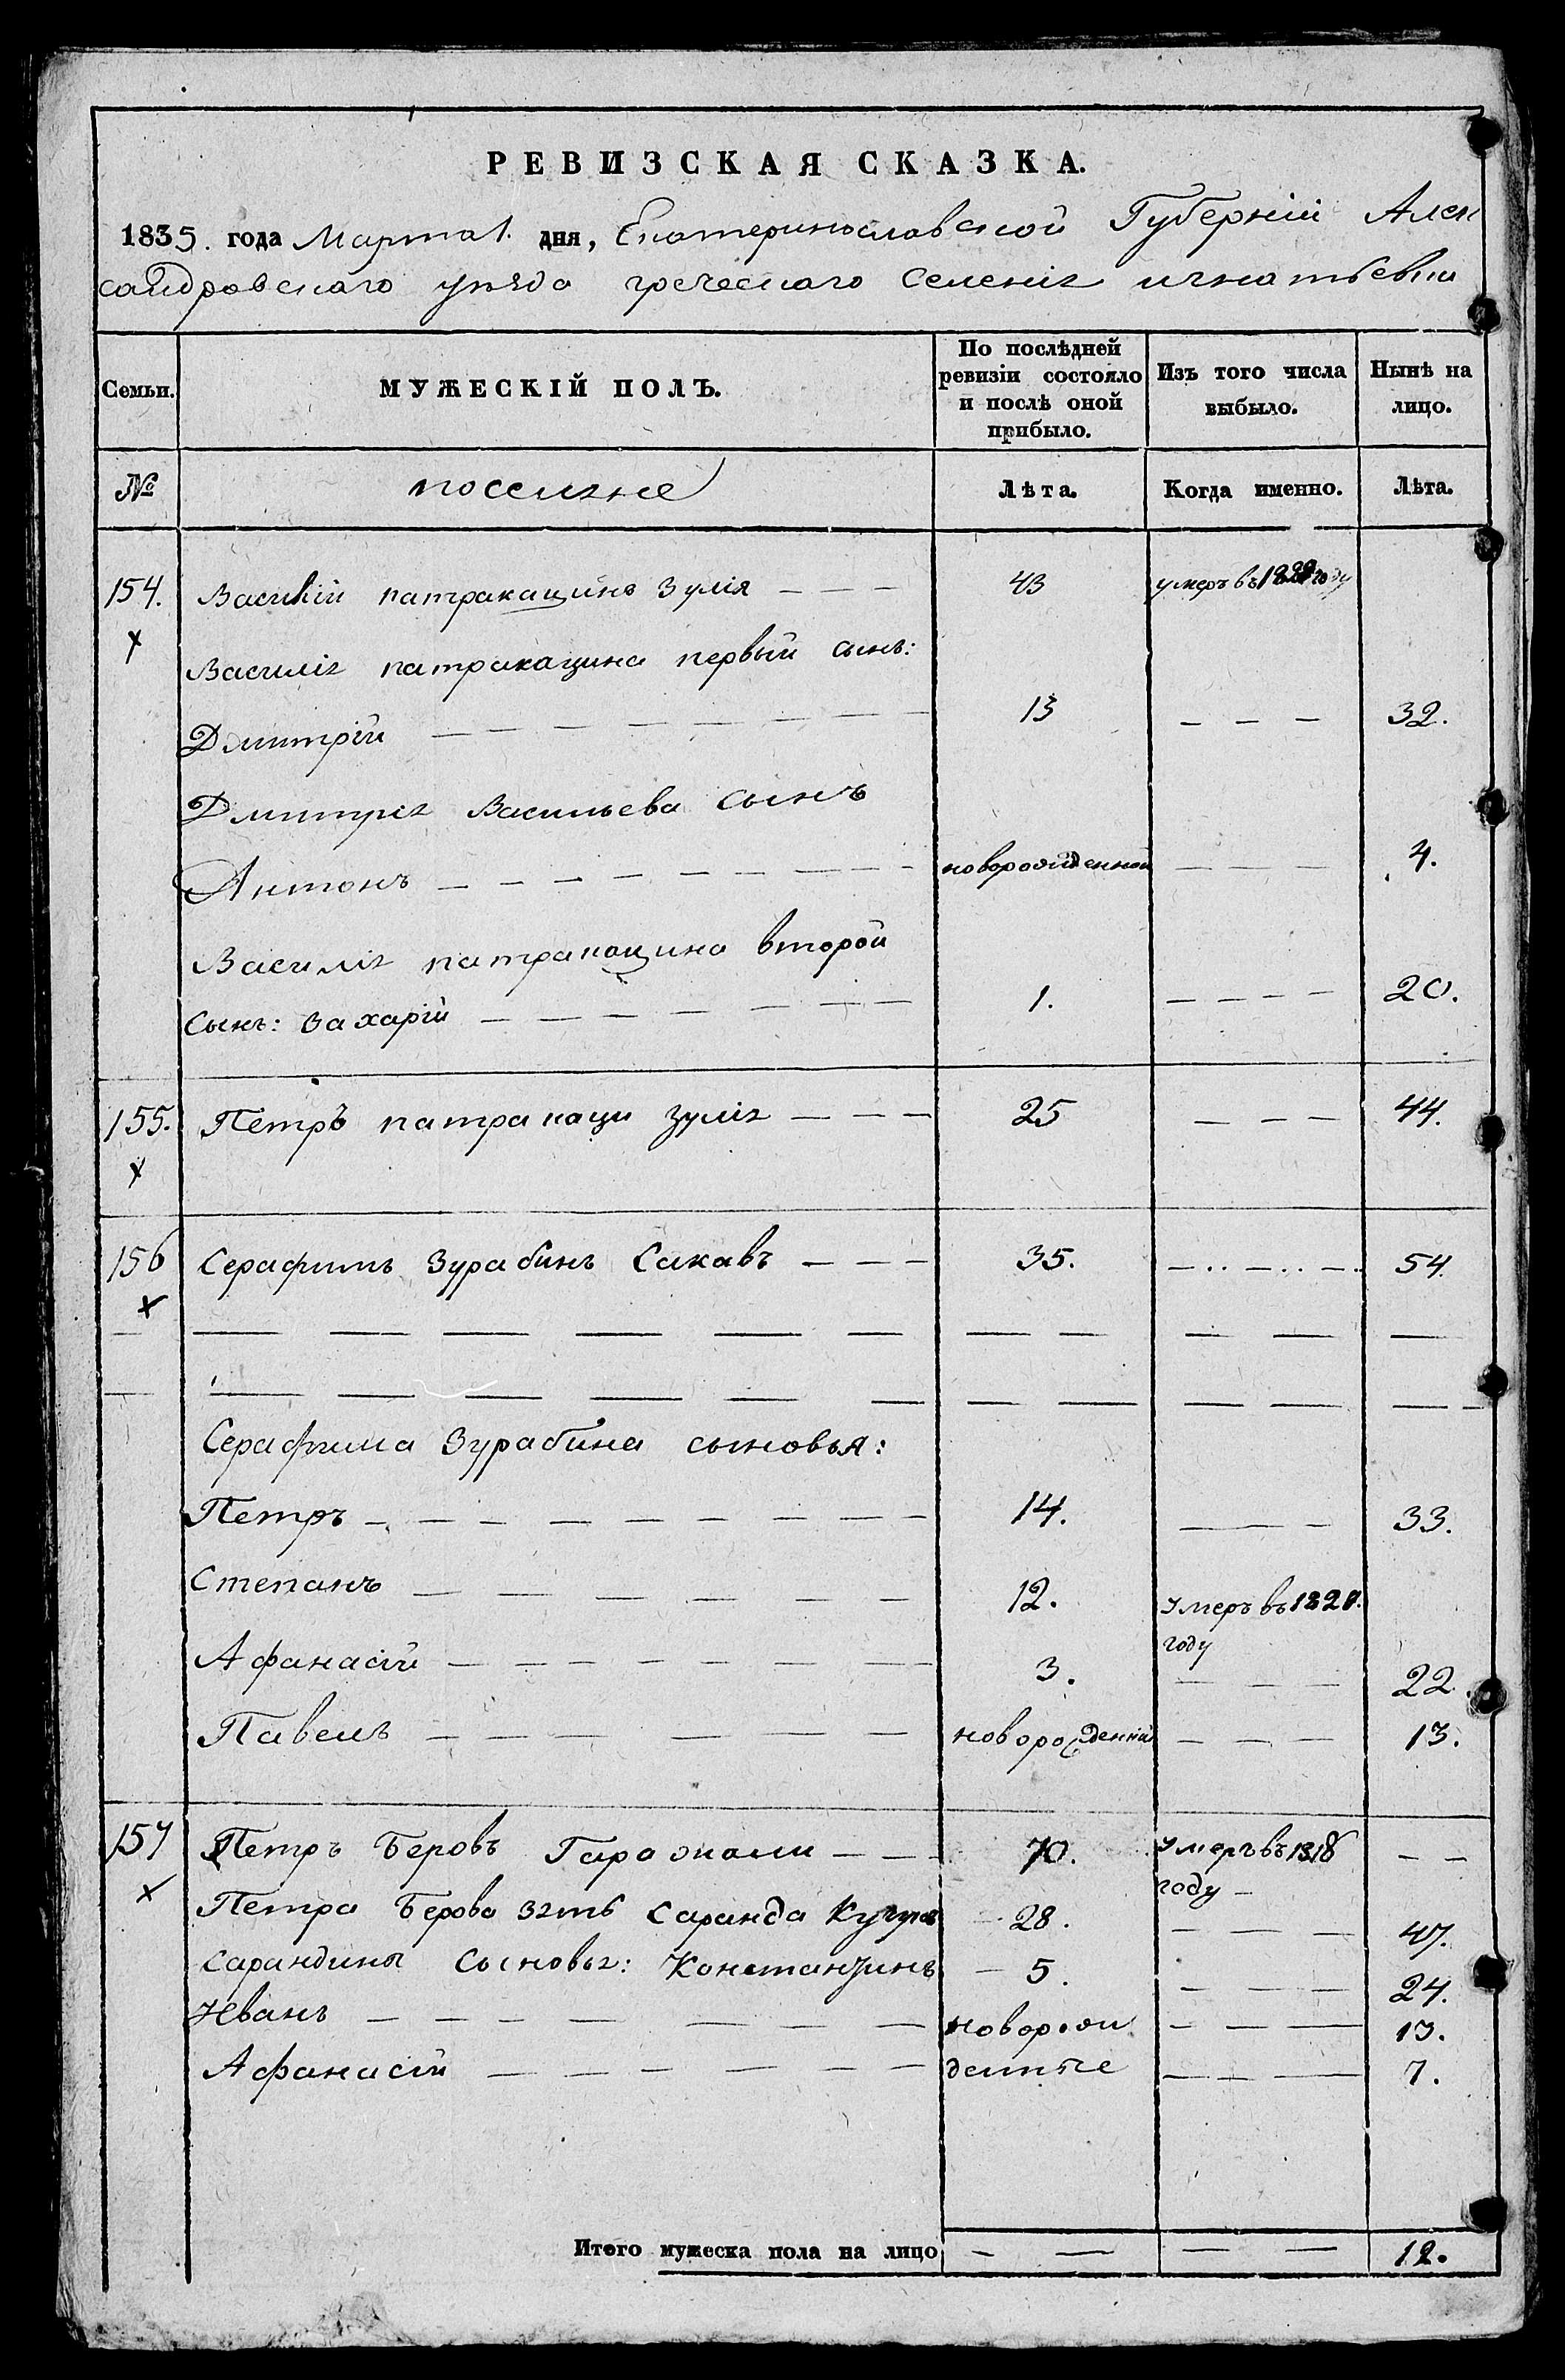 РЕВИЗСКАЯ СКАЗКА.
1835. года Марта 1. дня, Екатеринославской Губерніи Алек
сандровскаго уѣзда греческаго Селенія игнатьевки
Семьи. МУЖЕСКІЙ ПОЛЪ. По послѣдней ревизіи состояло и послѣ оной прибыло. Изъ того числа выбыло. Нынѣ на лицо.
№ поселяне Лѣта. Когда именно. Лѣта.
154. Василій патракацинъ Зулія — — — 43 умеръ въ году
Василія патракацина первый сынъ:
Дмитрій — — — — — — — 13 — — — 32.
Дмитрія Васильева Сынъ
Антонъ — — — — — — — новорожденной — — — 4.
Василія патракацина второй
Сынъ: Захарій — — — — — — 1. — — — — 20.
155. Петръ патракаци зулія — — — 25 — — — 44.
156 Серафимъ Зурабинъ Сакавъ — — — 35. — .. — .. — . 54.
Серафима Зурабина сыновья:
Петръ — — — — — — — — 14. — — — 33.
Степанъ — — — — — — 12. Умеръ въ 1820.
году
Афанасій — — — — — — — 3. — — — 22.
Павелъ — — — — — — новорожденный — — — 13.
157 Петръ Беровъ — — — 70. Умеръ въ 1818 — —
году —
Петра Берова зять Саранда — 28. — — — 47.
Сарандины Сыновья: Константинъ — 5. — — — 24.
Иванъ — — — — — — — — новорож — — — 13.
Афанасій — — — — — — денные — — — 7.
Итого мужеска пола на лицо — — — — 12.